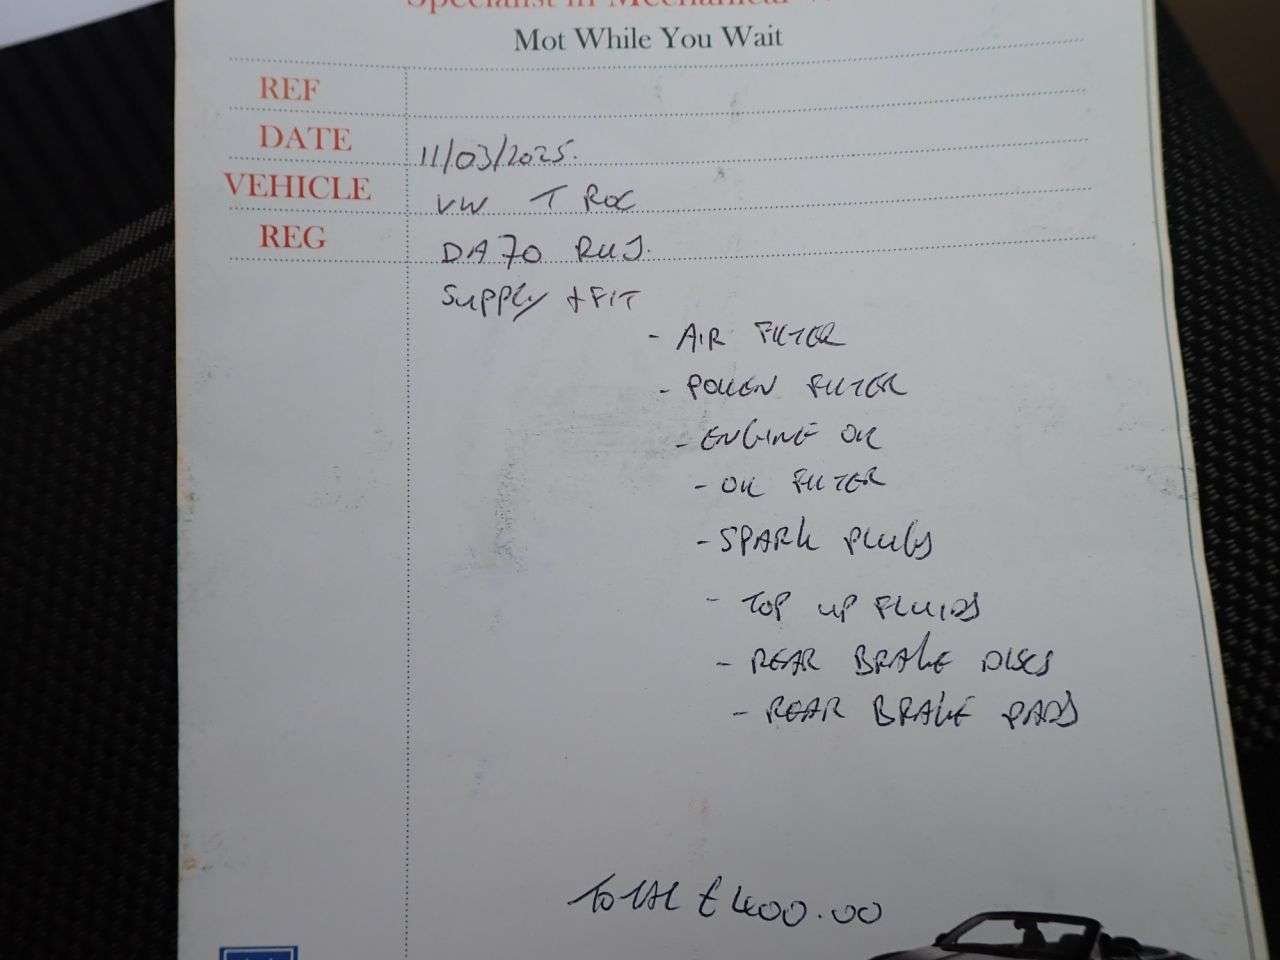 Specialist in Mechanical
Mot While You Wait
REF
DATE 11/03/2025.
VEHICLE VW T ROC
REG DA70 RUJ.
Supply + FIT
- AIR FILTER
- POLLEN FILTER
- ENGINE OIL
- OIL FILTER
- SPARK PLUGS
- TOP UP FLUIDS
- REAR BRAKE DISCS
- REAR BRAKE PADS
TOTAL £400.00